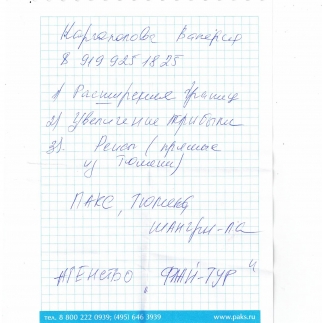 Каргаполова Валерия
8 919 925 18 25
1) Расширение границ
2) Увеличение прибыли
3). Рейсы (прямые
из Тюмени)
ПАКС, Тюмень
ШАНГРИ-ЛА
АГЕНСТВО „ФЛАЙ-ТУР"
тел. 8 800 222 0939; (495) 646 3939 www.paks.ru